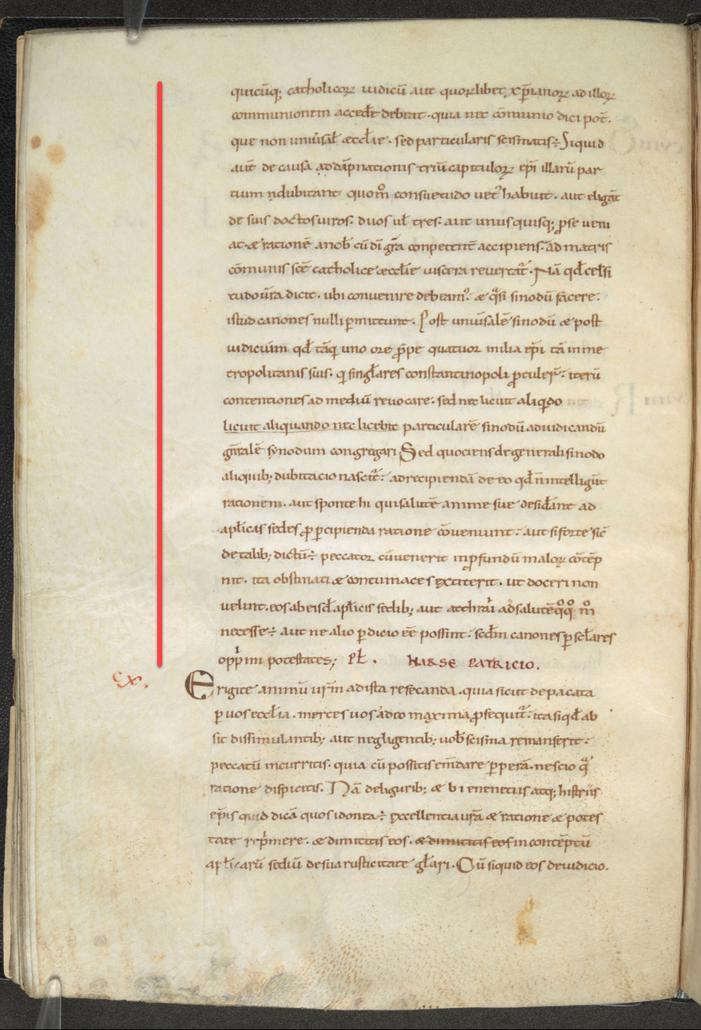 quicūq; catholicoꝝ iudiciū aut quorūlibet xp̄ianoꝝ ad illoꝝ
communionem accedē debeat · quia nec cōmunio dici pot̄ ·
que non uniusal̄ ęccl̄ie · sed particularis scismatis ÷ Siquid
aut̄ de causa ad dāpnationis triū capituloꝝ ep̄i illarū par
tium ndubitant quom̄ consuetudo uet᷒ habuit · aut eligāt
de suis doctos uiros · duos ul̄ tres · aut unus quisq; ꝑse ueni
at · & ratione anob̄ cū dī gr̄a conpetent̄ accipiens · ad matris
cōmunis sc̄e catholice æccl̄ie uiscera reuertat̄ · Nā qd̄ celsi
tudo ūra dicit · ubi conuenire debeam᷒ · & q̄si sinodū facere ·
istud canones nulli ꝑmittunt · Post uniūsalē sinodū & post
iudicium qd̄ tāq̄ uno ore ꝓpe quatuor milia ep̄i tā in me
tropolitanis suis · q̄ singl̄ares constantinopoli ꝑtuler̄ : iterū
contentiones ad mediū reuocare · sed nec licuit aliqdo
licuit aliquando nec licebit particularē sinodū adiudicandū
gn̄alē synodum congregari Sed quociens de generali sinodo
aliquib; dubitacio nascit̄ : ad recipiendā de eo qd̄ n̄ intelligūt
rationem · aut sponte hi qui salutē anime sue desid̄ant ad
apl̄icas sedes ꝓ ꝑcipienda ratione cōueniunt : aut si forte sic̄
de talib; dictū ÷ peccator cū uenerit in ꝓfundū maloꝝ cōtēp
nit · ita obstinati & contumaces exciterit · ut doceri non
uelint · eos ab eisd̄ apl̄icis sedib; aut atthraī ad salutē qōqō m̄
necesse ÷ aut ne alio ꝑdicio ēē possint · sed̄m canones ꝑ sel̄ares
opp̄mi potestates; Pl̄ · NARSE PATRICIO ·
cx · Erigite animū ur̄m ad ista resecanda · quia sicut de pacata
ꝑ uos eccl̄ia · merces uos adeo maxima ꝓsequit̄ : ita siqd̄ ab
sit dissimulantib; aut negligentib; uob̄ scisma remanserit :
peccatū incurritis · quia cū possitis em̄dare ꝑperā · nescio q̄
ratione dispicitis · Nā de ligurib; & ueneticis atq; histriis
ep̄is quid dicā quos idonea ÷ excellentia ur̄a & ratione & potes
tate rep̄mere · & dimittitis eos · & dimittitis eos in contēptū
apl̄icarū sediū de sua rusticitate gl̄ari · Cū siquid eos de iudicio ·